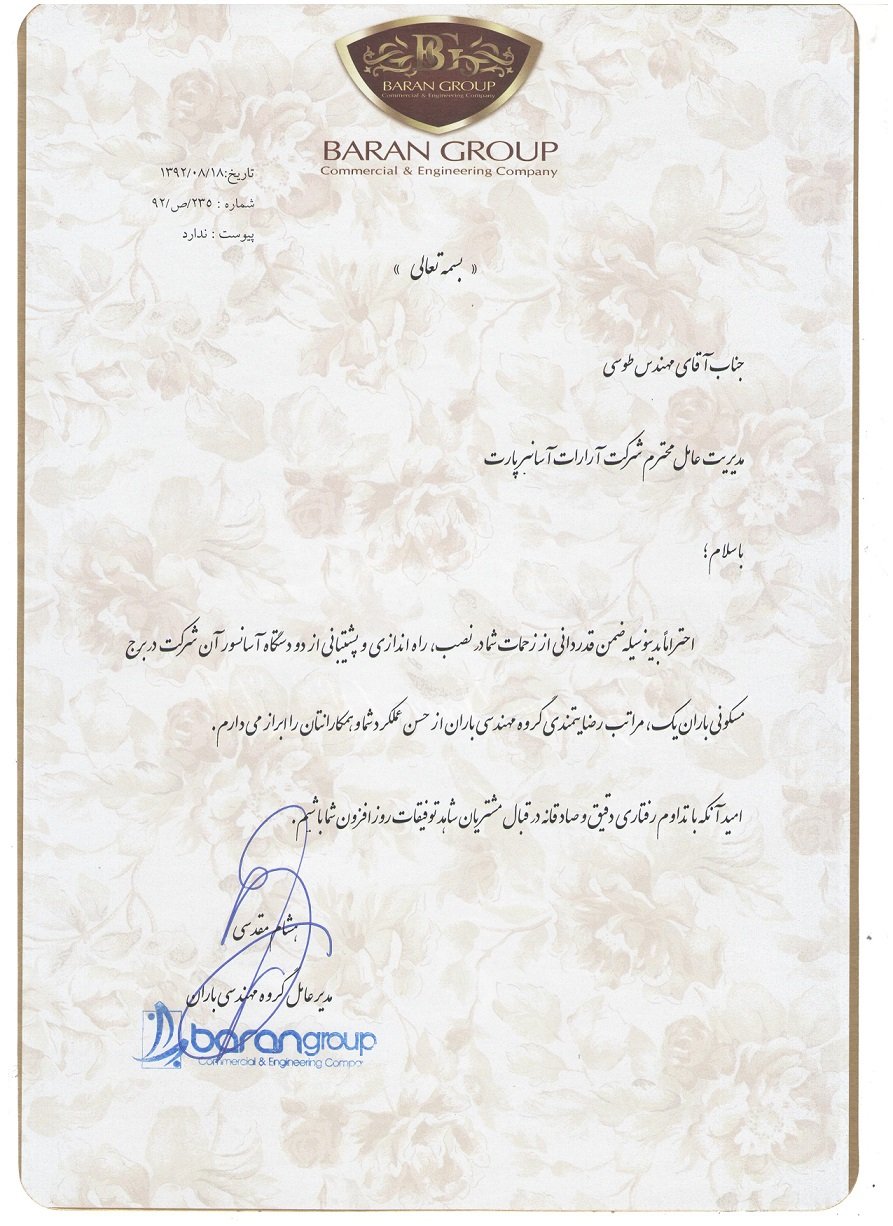 BARAN GROUP
Commercial & Engineering Company
BARAN GROUP
Commercial & Engineering Company
تاریخ:۱۳۹۲/۰۸/۱۸
شماره : ۲۳۵/ص/۹۲
پیوست : ندارد
« بسمه تعالی »
جناب آقای مهندس طوسی
مدیریت عامل محترم شرکت آرارات آسانبر پارت
باسلام ؛
احتراماً بدینوسیله ضمن قدردانی از زحمات شما در نصب، راه اندازی و پشتیبانی از دو دستگاه آسانسور آن شرکت در برج
مسکونی باران یک، مراتب رضایتمندی گروه مهندسی باران از حسن عملکرد شما و همکارانتان را ابراز می دارم.
امید آنکه با تداوم رفتاری دقیق و صادقانه در قبال مشتریان شاهد توفیقات روز افزون شما باشیم.
هشام مقدسی
مدیر عامل گروه مهندسی باران
barangroup
Commercial & Engineering Compny